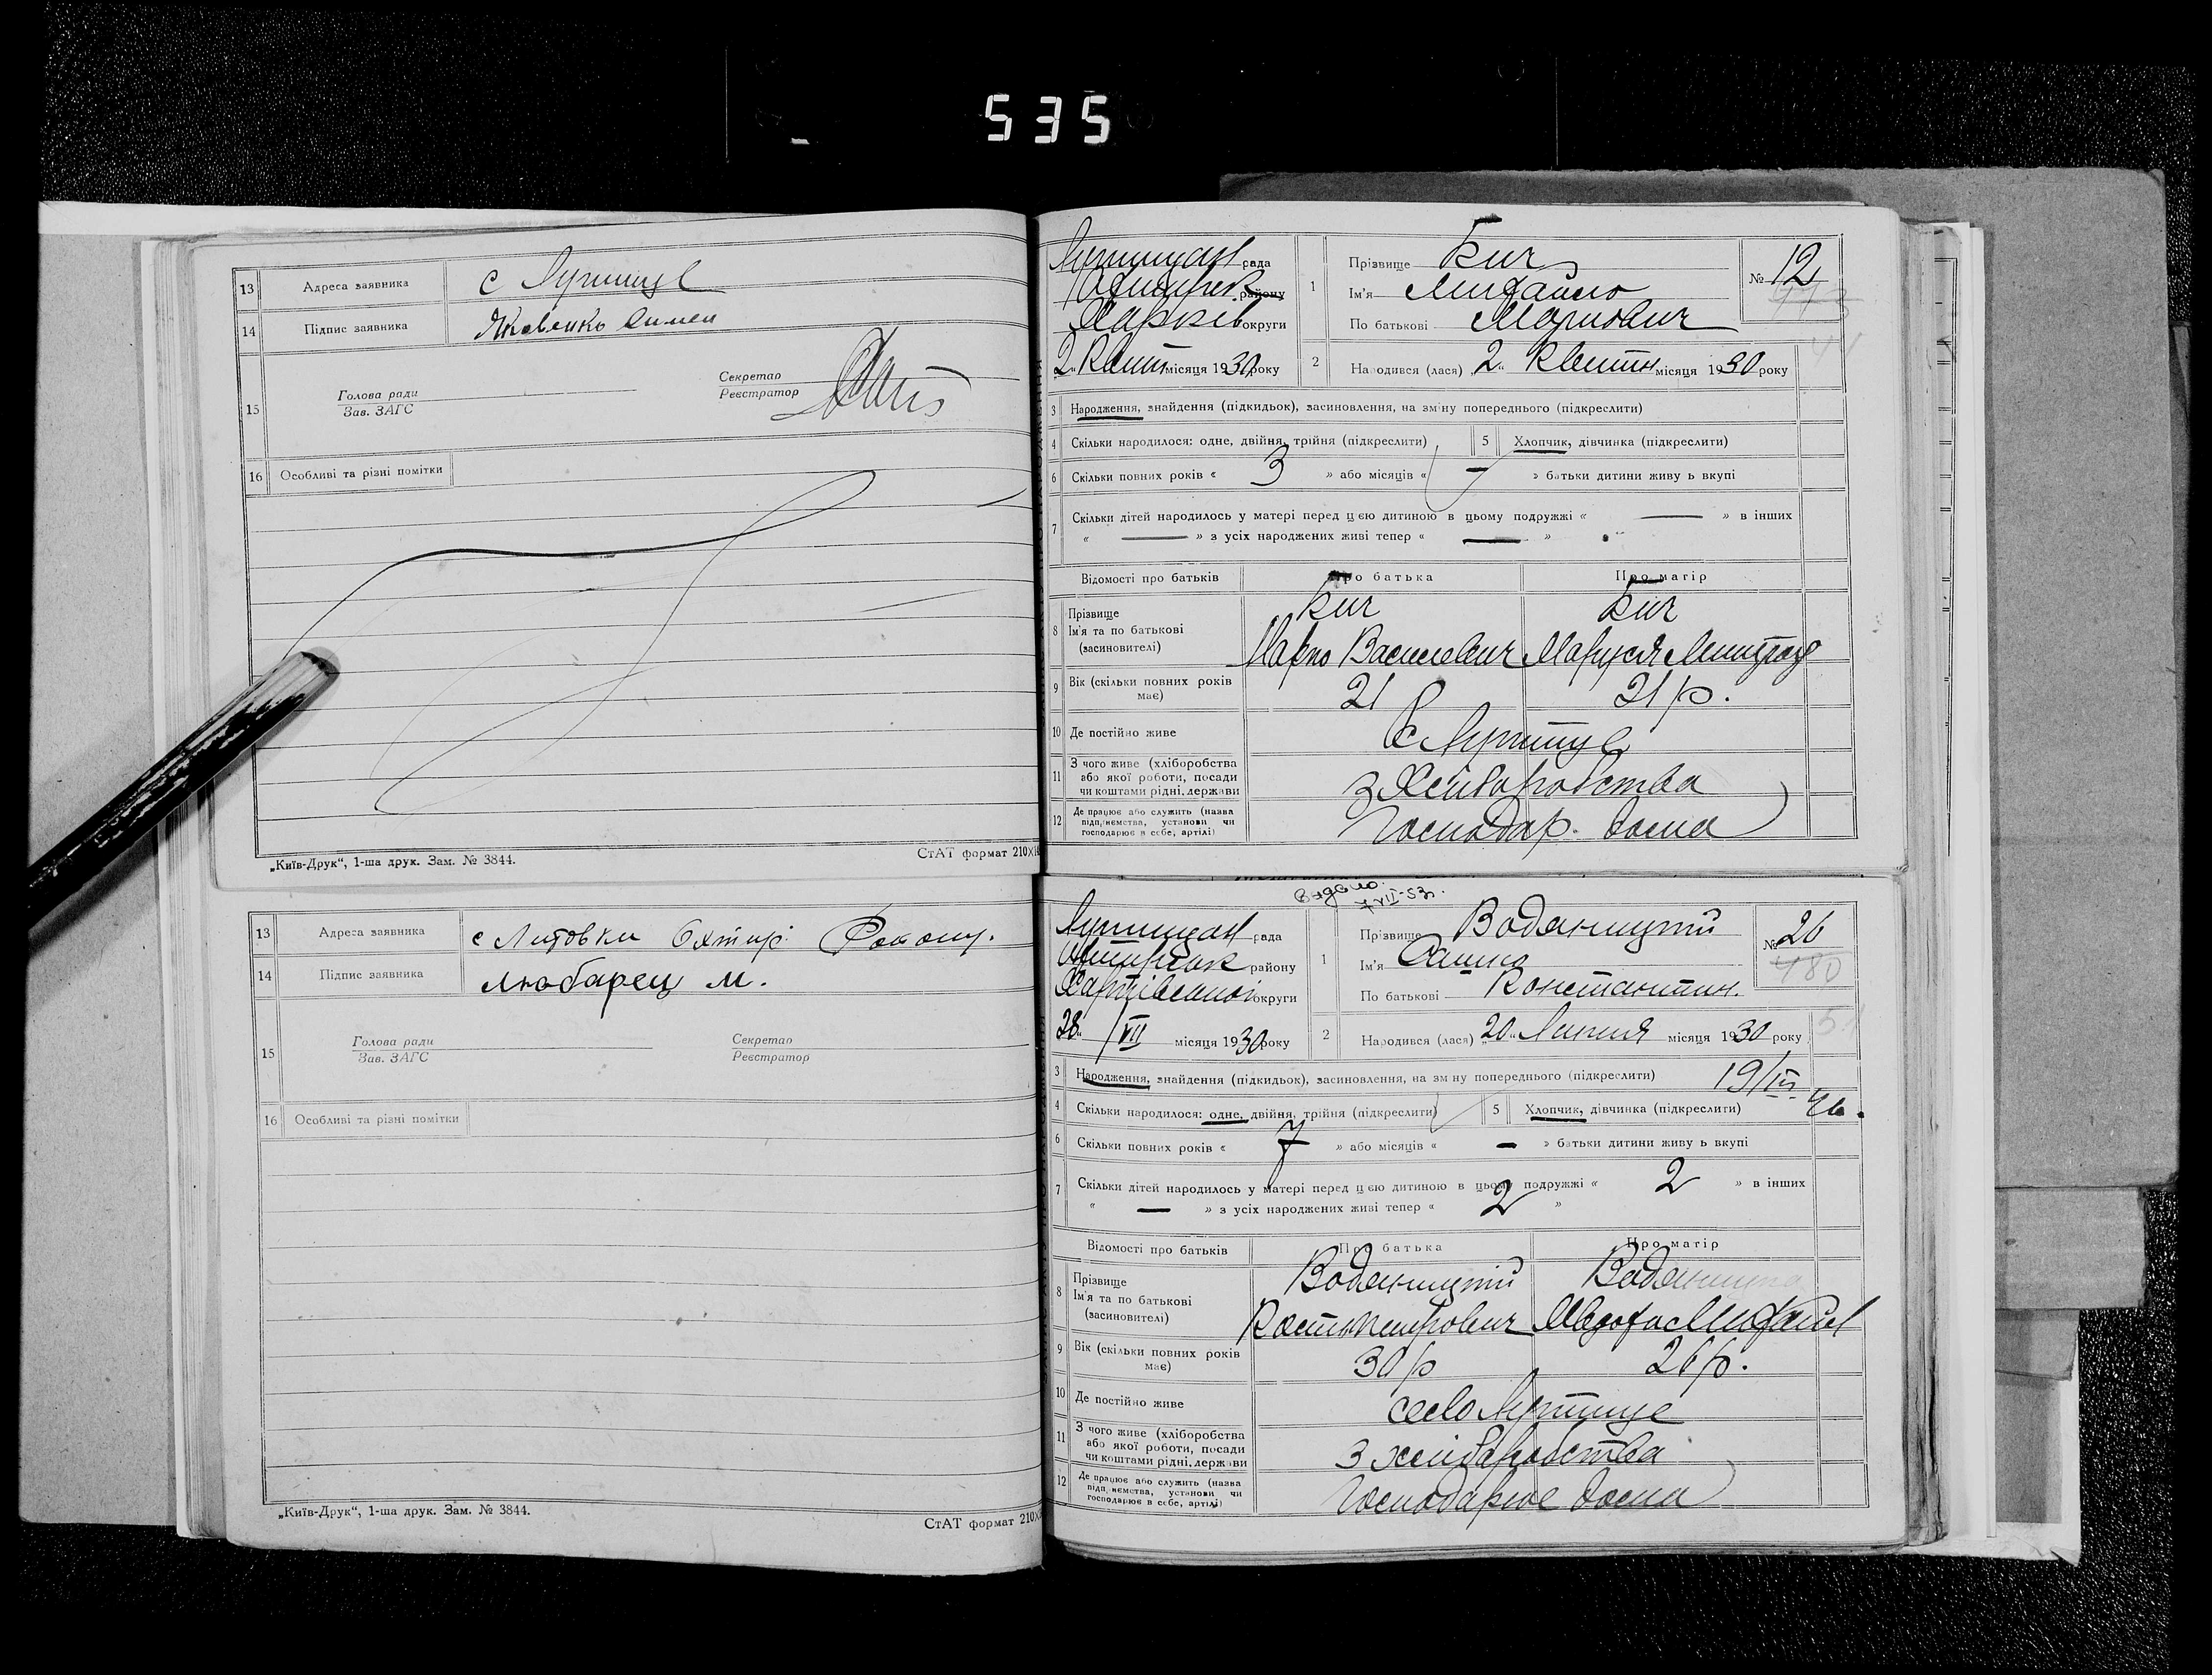 535
13 Адреса заявника с Лутище
14 Підпис заявника Яковенко Симен
15 Голова ради
Зав. ЗАГС
Секретар
Реєстратор
16 Особливі та різні помітки
„Київ-Друк“, 1-ша друк. Зам. № 3844.
СтАТ формат 210×1
рада
району
Харків округи
2 Квіт місяця 1930 року
1 Прізвище Бич
Ім'я Михайло
По батькові Маркович
№ 12
2 Народився (лася) „2“ Квітн місяця 1930 року
3 Народження, знайдення (підкидьок), засиновлення, на зміну попереднього (підкреслити)
4 Скільки народилося: одне, двійня, трійня (підкреслити) 5 Хлопчик, дівчинка (підкреслити)
6 Скільки повних років « 3 » або місяців « — » батьки дитини живу ь вкупі
7 Скільки дітей народилось у матері перед цією дитиною в цьому подружжі « — » в інших
« — » з усіх народжених живі тепер « — »
Відомості про батьків Про батька Про матір
8 Прізвище Бич Бич
Ім'я та по батькові
(засиновителі) Марко Василевич Маруся
9 Вік (скільки повних років має) 21 21 р.
10 Де постійно живе С Лутище
11 З чого живе (хліборобства
або якої роботи, посади
чи коштами рідні, держави з Хліборобства
12 Де працює або служить (назва
підприємства, установи чи
господарює в себе, артілі) Господар. дома
13 Адреса заявника с Литовки Охтир.
14 Підпис заявника Любарец М.
15 Голова ради
Зав. ЗАГС
Секретар
Реєстратор
16 Особливі та різні помітки
„Київ-Друк“, 1-ша друк. Зам. № 3844.
СтАТ формат 210×
Видано.
7 VII-53.
рада
району
Харківської округи
28 / VII місяця 1930 року
1 Прізвище Водяницький
Ім'я Сашко
По батькові Константин.
№ 26
480
2 Народився (лася) „20“ Липня місяця 1930 року
3 Народження, знайдення (підкидьок), засиновлення, на зміну попереднього (підкреслити) 19/III
46.
4 Скільки народилося: одне, двійня, трійня (підкреслити) 5 Хлопчик, дівчинка (підкреслити)
6 Скільки повних років « 7 » або місяців « — » батьки дитини живу ь вкупі
7 Скільки дітей народилось у матері перед цією дитиною в цьому подружжі « 2 » в інших
« — » з усіх народжених живі тепер « 2 »
Відомості про батьків Про батька Про матір
8 Прізвище Водяницький Водяницька
Ім'я та по батькові
(засиновителі) Кость Петрович
9 Вік (скільки повних років має) 30 р 26 р.
10 Де постійно живе село Лутище
11 З чого живе (хліборобства
або якої роботи, посади
чи коштами рідні, держави З хліборобства
12 Де працює або служить (назва
підприємства, установи чи
господарює в себе, артілі) Господарює дома